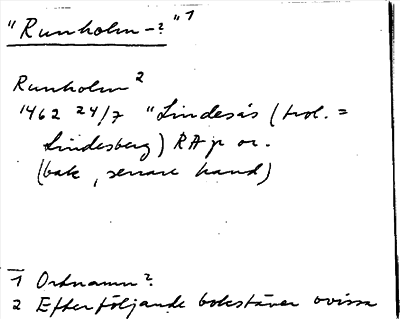 "Runholm-?" 1
Runholm 2
1462 24/7 "Lindesås (trol. =
Lindesberg) RAp or.
(bak, senare hand)
1 Ortnamn?
2 Efterföljande bokstäver ovissa